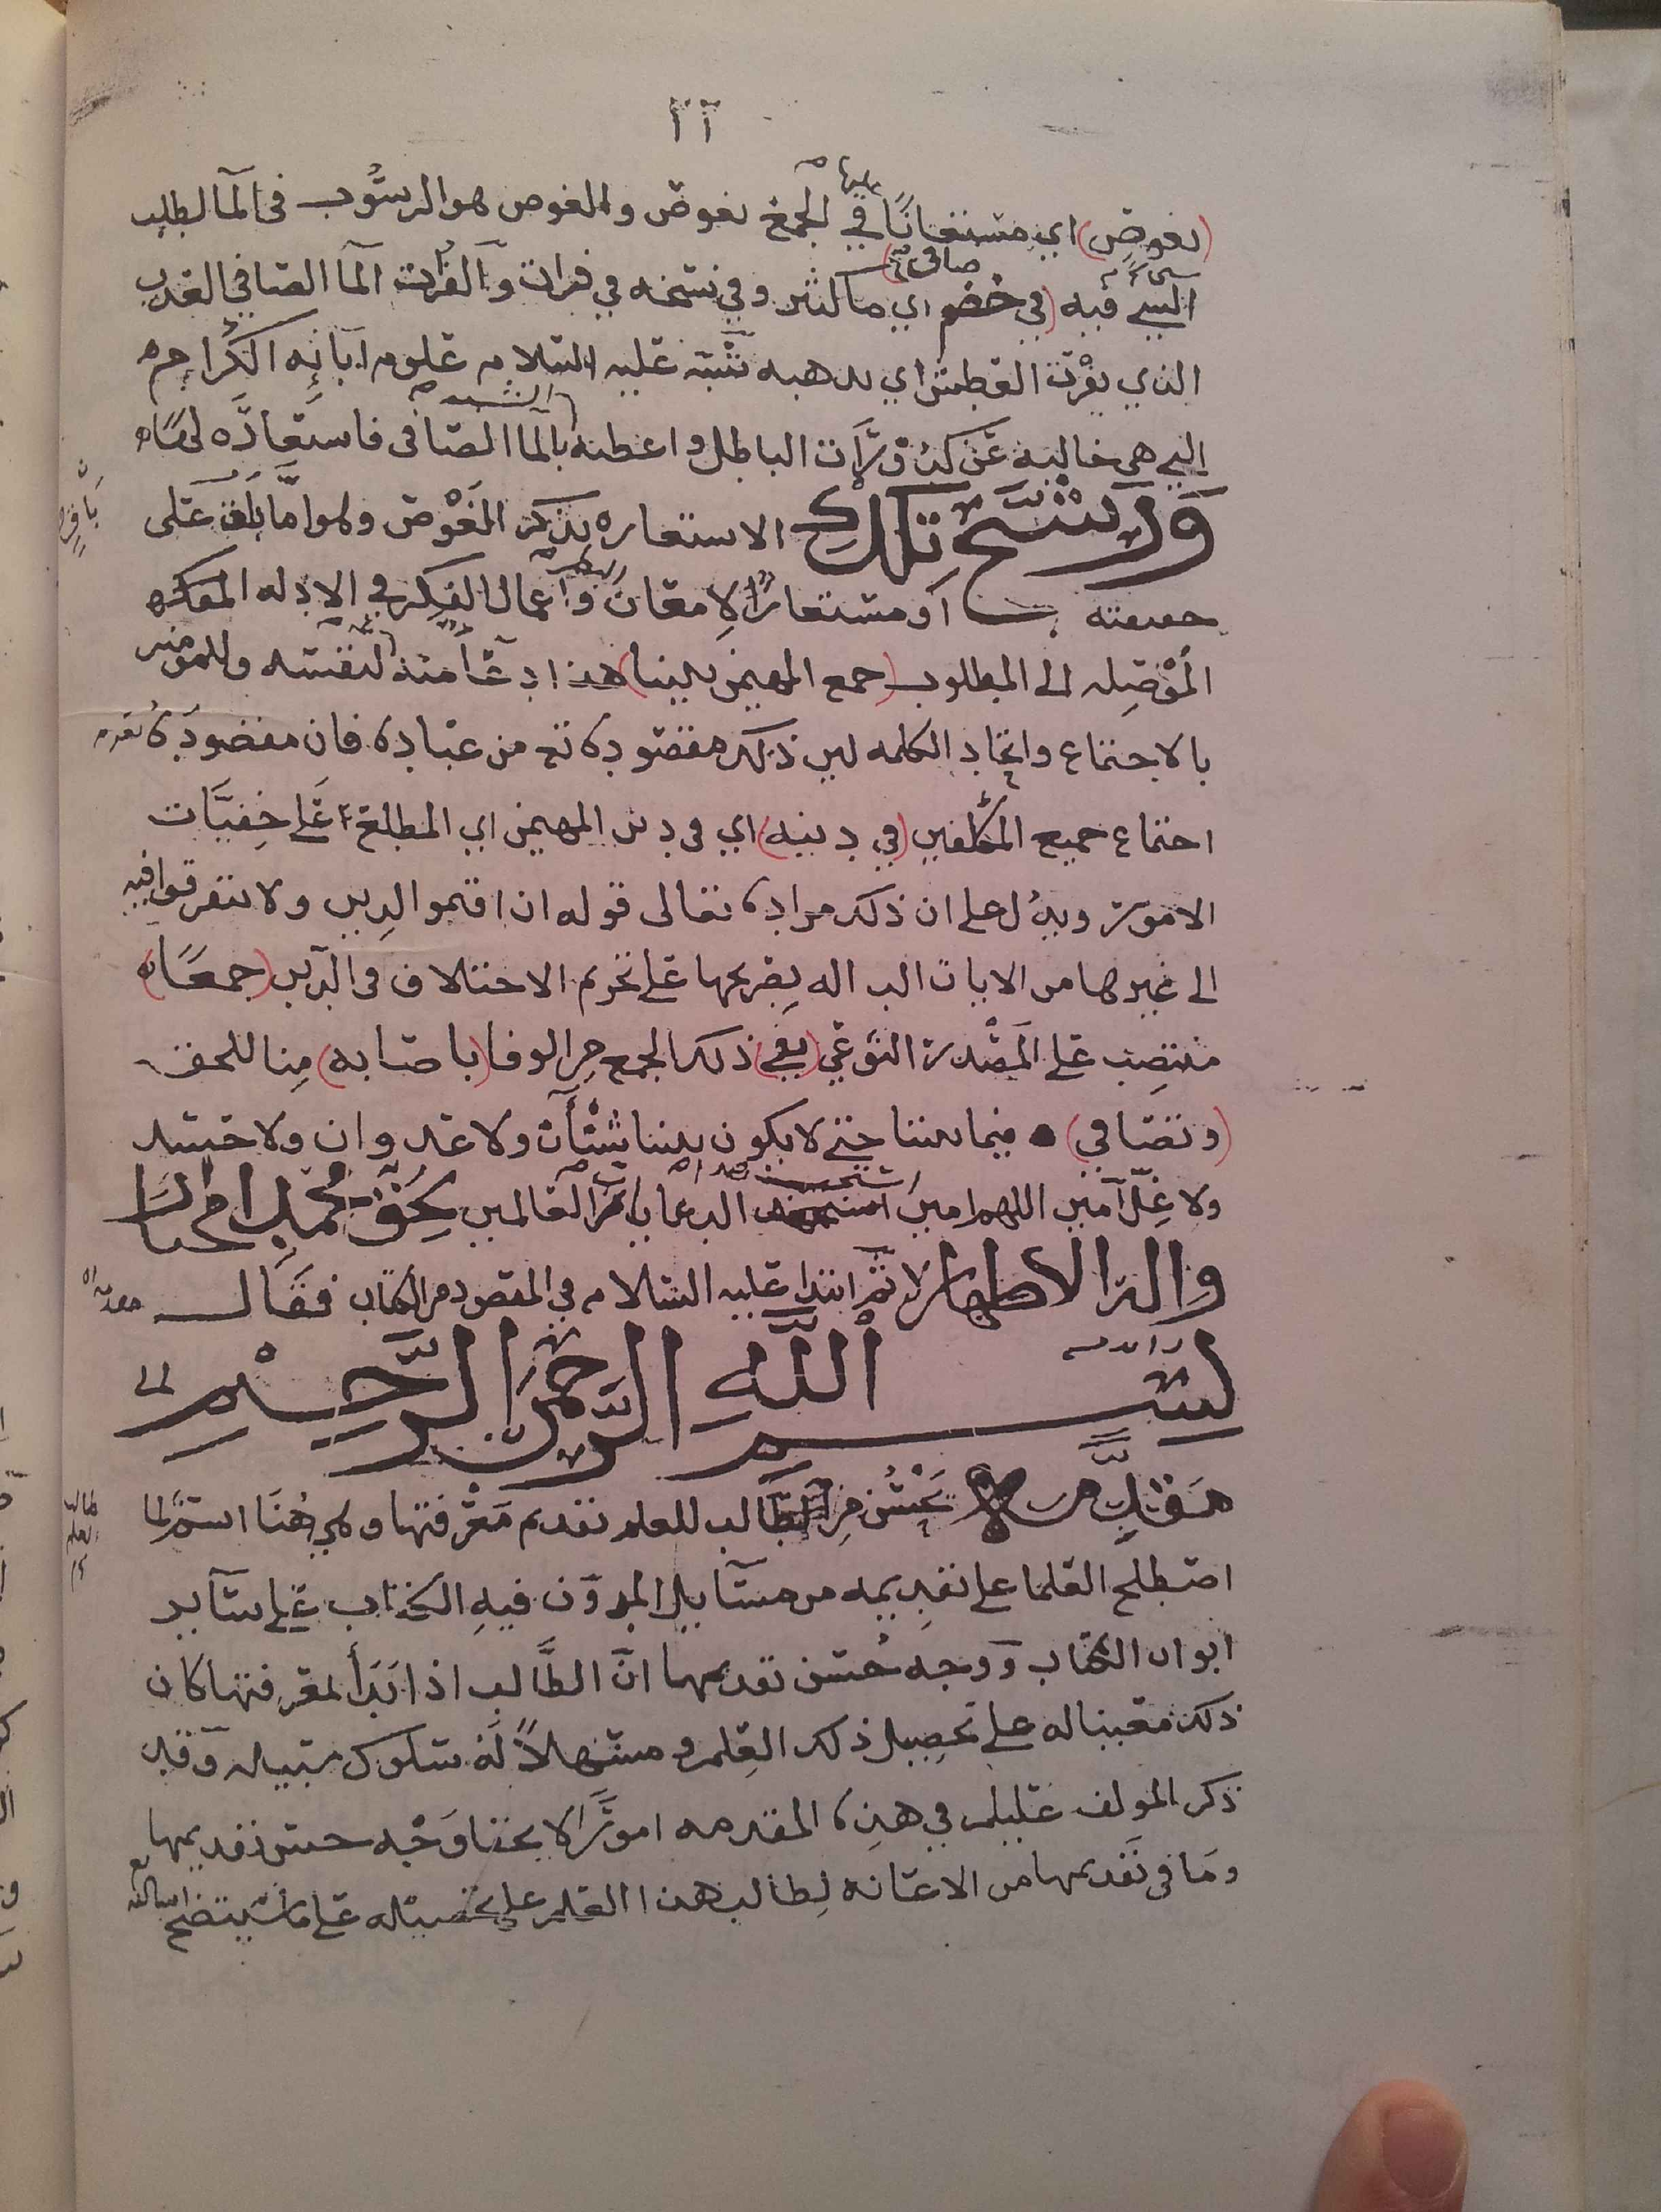 ٢٢
(نغوص) اي مستعانًا بها في الجمع نغوص والغوص هو الرسُوب في المآ لطلب
الشي فيه (في خضم صافي) اي ما كثير وفي نسخه في فرات والفرات المآ الصافي العذب
الذي يفرت العطش اي يذهبه شبّه عليه السلام علوم آبائه الكرام
التي هي خاليه عن كدورَات الباطل واعطنه بالمآ الصافي فاستعاره لها
وَرشح تلك الاستعاره بذكر الغَوْص وهو اما باق على
حقيقته او مستعارًا لإمعان واعمال الفكر في الادله
المُوْصِله الى المطلوب (جمع المهيمن بيننا) هذا دعآ منه لنفسه وللمومنين
بالاجتماع واتحاد الكلمه لين ذلك مقصوده تع من عباده فان مقصوده
اجتماع جميع المكلفين (في دينه) اي في دين المهيمن اي المطلع على خفيَّات
الامور ويدُل على ان ذلك مراده تعالى قوله ان اقيموا الدين ولا تتفرقوا فيه
الى غيرها من الايات الداله بصريحها على تحريم الاختلاف في الدين (جمعًا)
منتصِب على المَصْدر النوعي (يفي) ذلك الجمع من الوفا (باصابه) منا للحق
(وتصافي) فيما بيننا حتى لا يكون بيننا شنْأَن ولا عدوان ولا حسد
ولا غِلّ آمين اللهم امين الدعا يا رب العالمين بحق محمد المختار
واله الاطهار ثم ابتدا عليه السلام في المقصود من الكتاب فقال
بسم الله الرحمن الرحيم
مقدِّمه يحْسُن من الطَّالب للعلم تقديم مَعْرفتها وهي هُنَا اسم لما
اصطلح العلما على تقديمه من مسآيل المدوّن فيه الكتاب على سآير
ابواب الكتاب ووجه حُسن تقديمها انَّ الطَّالب اذا بَدَأ لمعرفتها كان
ذلك معينا له على تحصيل ذلك العِلم ومسهلاً لَه سلوك سبيله وقد
ذكر المولف عليلم في هذه المقدمه امورًا لا يخفا وَجْه حسن تقديمها
ومَا في تَقديمها من الاعانه لِطالب هذا العلم على تحصيله على ما سيتضح